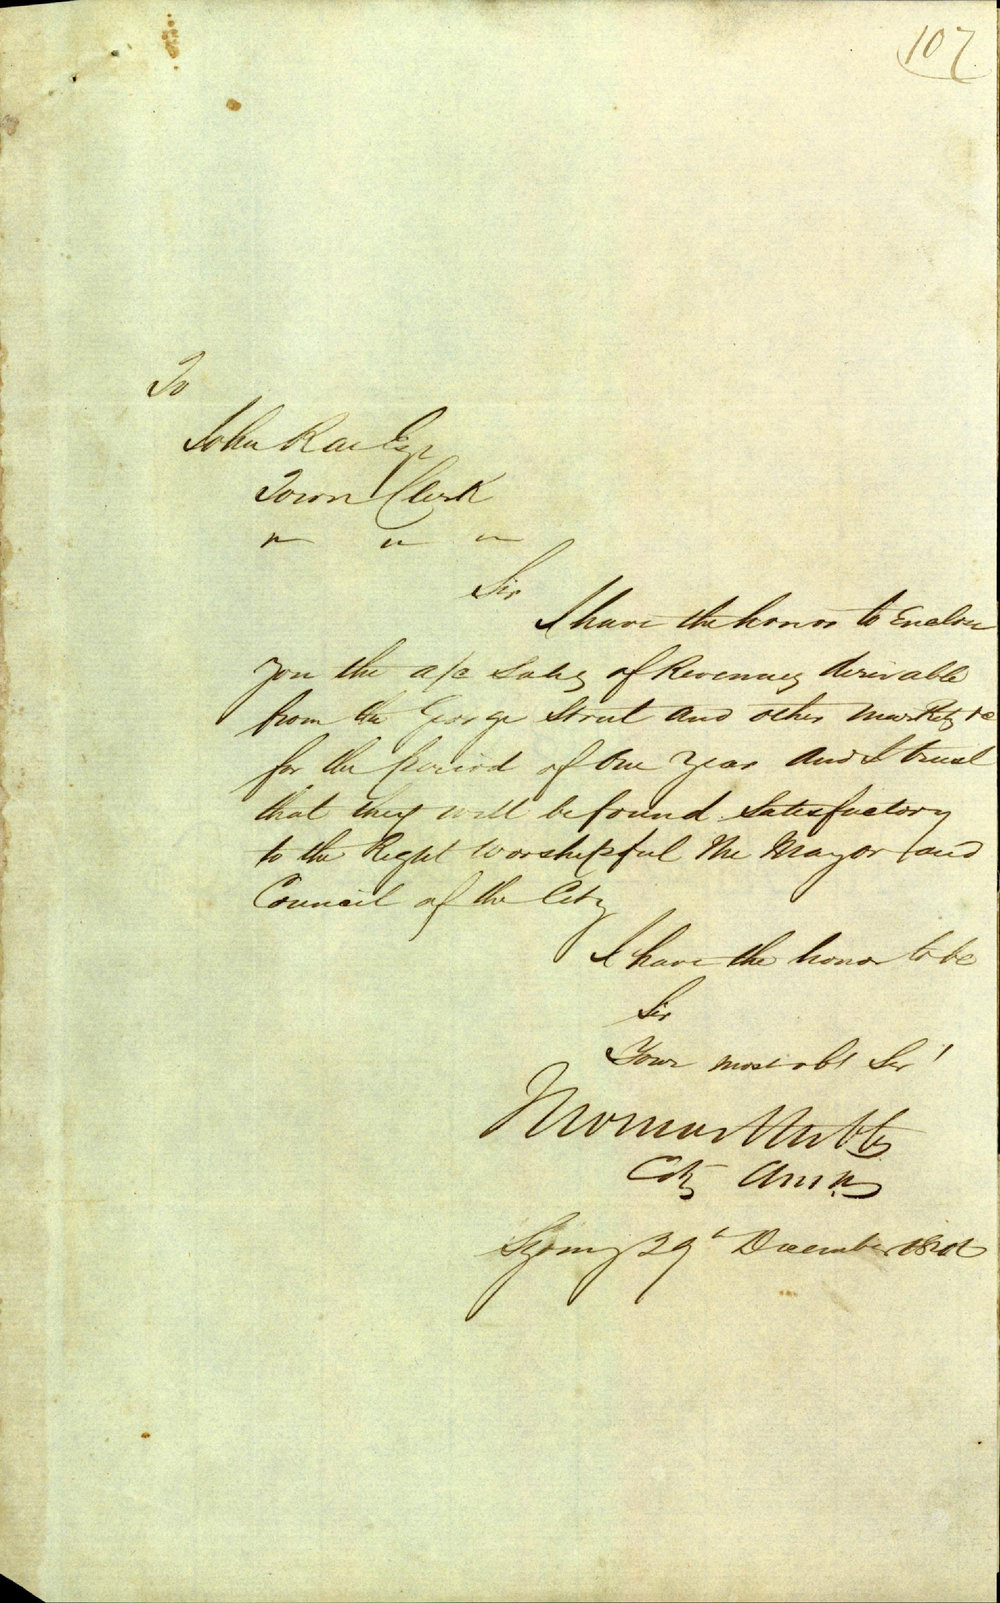 107
To
John Rae Esqr
Town Clerk
" " "
Sir
I have the honor to Enclose
you the a/c Sales of Revenues derivable
from the George Street and other markets &c
for the period of One Year And I trust
that they will be found Satisfactory
to the Right Worshipful The Mayor and
Council of the City
I have the honor to be
Sir
Your most obt Ser'
Thomas Stubbs
City
Sydney 29th December